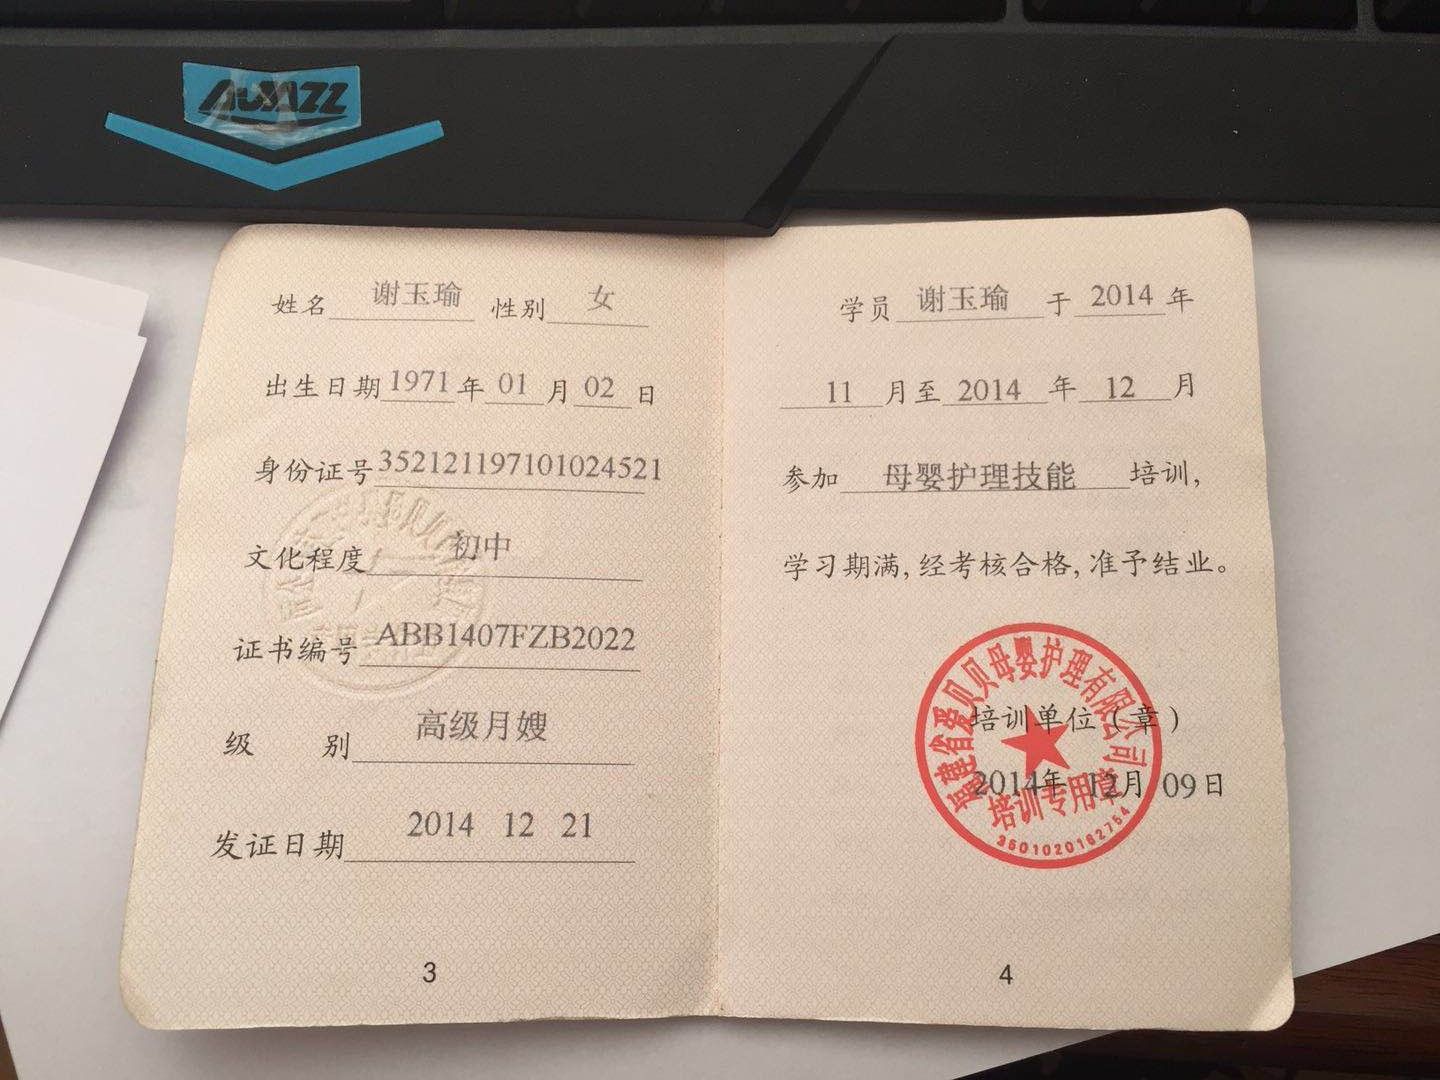 AUJAZZ
姓名 谢玉瑜 性别 女
出生日期 1971 年 01 月 02 日
身份证号 352121197101024521
文化程度 初中
证书编号 ABB1407FZB2022
级 别 高级月嫂
发证日期 2014 12 21
3
学员 谢玉瑜 于 2014 年
11 月至 2014 年 12 月
参加 母婴护理技能 培训,
学习期满,经考核合格,准予结业。
福建省爱贝贝母婴护理有限公司
培训单位(章)
2014年 12月 09日
培训专用章
3501020162754
4